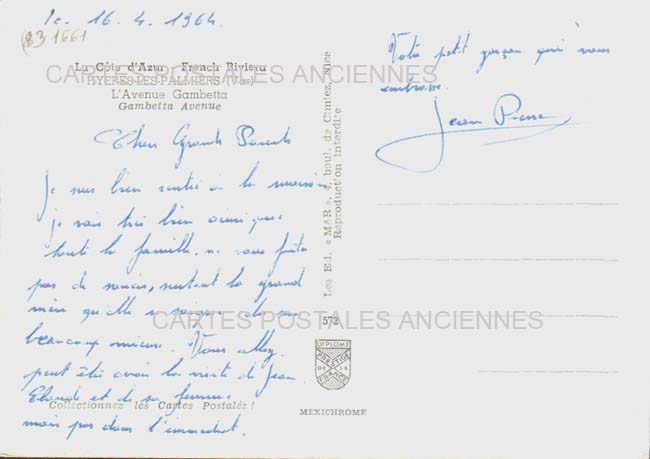 le. 16. 4. 1964.
(83 1661)
La Côte d'Azur - French Riviera
HYÈRES-LES-PALMIERS (Var)
L'Avenue Gambetta
Gambetta Avenue
CARTES POSTALES ANCIENNES
Chers Grands Parents
Je suis bien rentré à la maison
je vais très bien ainsi que
toute la famille. ne vous faite
pas de soucis, surtout la grand
mère qu'elle se soigne
beaucoup mieux. Vous allez
peut être avoir la visite de Jean
Claude et de sa femme
mais pas dans l'immédiat.
Collectionnez les Cartes Postales !
Les Ed. « MAR », 4, boul. de Cimiez, Nice
Reproduction interdite
573
CARTES POSTALES ANCIENNES
DIPLOME
PRESTIGE
DE LA
FRANCE
MEXICHROME
Votre petit garçon qui vous
embrasse.
Jean Pierre